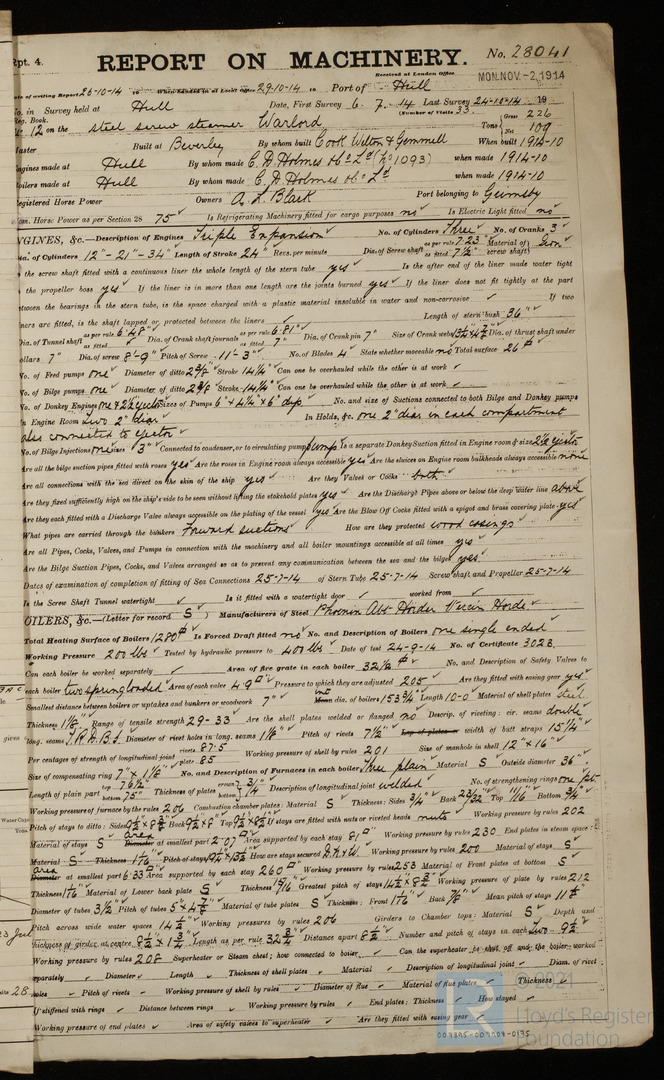 Rpt. 4.
REPORT ON MACHINERY. No. 28041
Received at London Office MON. NOV. 2, 1914
of writing Report 26-10-14 When handed in at Local Office 29-10-14 Port of Hull
No. in Survey held at Hull Date, First Survey 6. 7. 14 Last Survey 24-10-14 19
Reg. Book. (Number of Visits 33
12 on the steel screw steamer Warlord Tons Gross 226 Net 109
Master Built at Beverley By whom built Cook Welton & Gemmell When built 1914-10
Engines made at Hull By whom made C. D. Holmes & Co Ld (No 1093) when made 1914-10
Boilers made at Hull By whom made C. D. Holmes & Co Ld when made 1914-10
Registered Horse Power Owners A. L. Black Port belonging to Grimsby
Nom. Horse Power as per Section 28 75 Is Refrigerating Machinery fitted for cargo purposes no Is Electric Light fitted no
ENGINES, &c.—Description of Engines Triple Expansion No. of Cylinders Three No. of Cranks 3
Dia. of Cylinders 12" - 21" - 34" Length of Stroke 24" Revs. per minute Dia. of Screw shaft as per rule 7.23 as fitted 7½" Material of screw shaft Iron
Is the screw shaft fitted with a continuous liner the whole length of the stern tube yes Is the after end of the liner made water tight
in the propeller boss yes If the liner is in more than one length are the joints burned yes If the liner does not fit tightly at the part
between the bearings in the stern tube, is the space charged with a plastic material insoluble in water and non-corrosive If two
liners are fitted, is the shaft lapped or protected between the liners Length of stern bush 36"
Dia. of Tunnel shaft as per rule 6.48" as fitted Dia. of Crank shaft journals as per rule 6.81" as fitted 7" Dia. of Crank pin 7" Size of Crank webs Dia. of thrust shaft under
collars 7" Dia. of screw 8'-9" Pitch of Screw 11'-3" No. of Blades 4 State whether moveable no Total surface 26
No. of Feed pumps one Diameter of ditto 2⅜" Stroke 14¼" Can one be overhauled while the other is at work
No. of Bilge pumps one Diameter of ditto 2⅜" Stroke 14¼" Can one be overhauled while the other is at work
No. of Donkey Engines one & 2½ ejector Sizes of Pumps 6" x 4¼" x 6" dup. No. and size of Suctions connected to both Bilge and Donkey pumps
In Engine Room Two 2" diar In Holds, &c. one 2" diar in each compartment
also connected to ejector
No. of Bilge Injections one sizes 3" Connected to condenser, or to circulating pump pump Is a separate Donkey Suction fitted in Engine room & size 2½ ejector
Are all the bilge suction pipes fitted with roses yes Are the roses in Engine room always accessible yes Are the sluices on Engine room bulkheads always accessible none
Are all connections with the sea direct on the skin of the ship yes Are they Valves or Cocks both
Are they fixed sufficiently high on the ship's side to be seen without lifting the stokehold plates yes Are the Discharge Pipes above or below the deep water line above
Are they each fitted with a Discharge Valve always accessible on the plating of the vessel yes Are the Blow Off Cocks fitted with a spigot and brass covering plate yes
What pipes are carried through the bunkers Forward suctions How are they protected wood casings
Are all Pipes, Cocks, Valves, and Pumps in connection with the machinery and all boiler mountings accessible at all times yes
Are the Bilge Suction Pipes, Cocks, and Valves arranged so as to prevent any communication between the sea and the bilges yes
Dates of examination of completion of fitting of Sea Connections 25-7-14 of Stern Tube 25-7-14 Screw shaft and Propeller 25-7-14
Is the Screw Shaft Tunnel watertight Is it fitted with a watertight door worked from
BOILERS, &c.—(Letter for record S) Manufacturers of Steel Phoenix Abt Horder Verein Horde
Total Heating Surface of Boilers 1280 Is Forced Draft fitted no No. and Description of Boilers one single ended
Working Pressure 200 lbs Tested by hydraulic pressure to 400 lbs Date of test 24-9-14 No. of Certificate 3023
Can each boiler be worked separately Area of fire grate in each boiler 32½ No. and Description of Safety Valves to
each boiler two spring loaded Area of each valve 4.9 Pressure to which they are adjusted 205 Are they fitted with easing gear yes
Smallest distance between boilers or uptakes and bunkers or woodwork 7" Mean dia. of boilers 153¾ Length 10-0 Material of shell plates steel
Thickness 1⅛ Range of tensile strength 29-33 Are the shell plates welded or flanged no Descrip. of riveting: cir. seams double
long. seams T.R.D.B.S. Diameter of rivet holes in long. seams 1⅛" Pitch of rivets 7½" Lap of plates or width of butt straps 15¼"
Per centages of strength of longitudinal joint rivets 87.5 plate 85 Working pressure of shell by rules 201 Size of manhole in shell 12" x 16"
Size of compensating ring 7" x 1⅛" No. and Description of Furnaces in each boiler Three plain Material S Outside diameter 36"
Length of plain part top 76½" bottom 75" Thickness of plates crown ¾ bottom Description of longitudinal joint welded No. of strengthening rings one
Working pressure of furnace by the rules 206 Combustion chamber plates: Material S Thickness: Sides ¾ Back 23/32 Top 11/16 Bottom ¾
Pitch of stays to ditto: Sides Back Top If stays are fitted with nuts or riveted heads nuts Working pressure by rules 202
Material of stays S area Diameter at smallest part 2.07 Area supported by each stay 81 Working pressure by rules 230 End plates in steam space:
Material S Thickness 1 1/16 Pitch of stays How are stays secured D.N.&W. Working pressure by rules 200 Material of stays S
area Diameter at smallest part 6.33 Area supported by each stay 260 Working pressure by rules 253 Material of Front plates at bottom S
Thickness Material of Lower back plate S Thickness 15/16 Greatest pitch of stays Working pressure of plate by rules 212
Diameter of tubes 3½ Pitch of tubes 5" x 4⅞ Material of tube plates S Thickness: Front Back ⅞ Mean pitch of stays
Pitch across wide water spaces 14½ Working pressures by rules 206 Girders to Chamber tops: Material S Depth and
thickness of girder at centre Length as per rule 32¾ Distance apart 8½ Number and pitch of stays in each Two 9½
Working pressure by rules 208 Superheater or Steam chest; how connected to boiler Can the superheater be shut off and the boiler worked
separately Diameter Length Thickness of shell plates Material Description of longitudinal joint Diam. of rivet
holes Pitch of rivets Working pressure of shell by rules Diameter of flue Material of flue plates Thickness
If stiffened with rings Distance between rings Working pressure by rules End plates: Thickness How stayed
Working pressure of end plates Area of safety valves to superheater Are they fitted with easing gear
© 2021
Lloyd's Register
Foundation